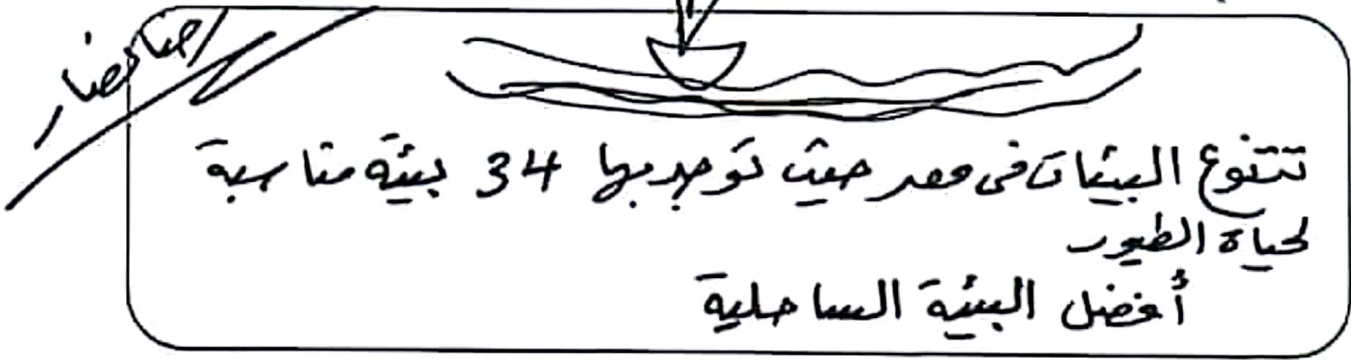 تتنوع البيئات فى مصر حيث توجد بها 34 بيئة مناسبة
لحياة الطيور
أفضل البيئة الساحلية